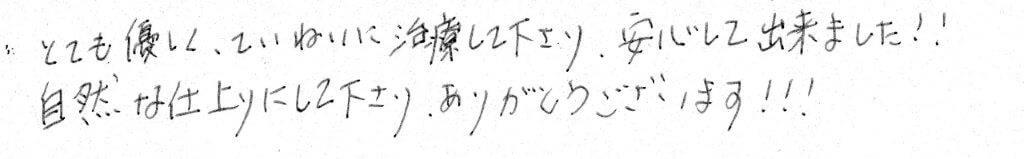 とても優しく、ていねいに治療して下さり、安心して出来ました!!
自然な仕上りにして下さり、ありがとうございます!!!